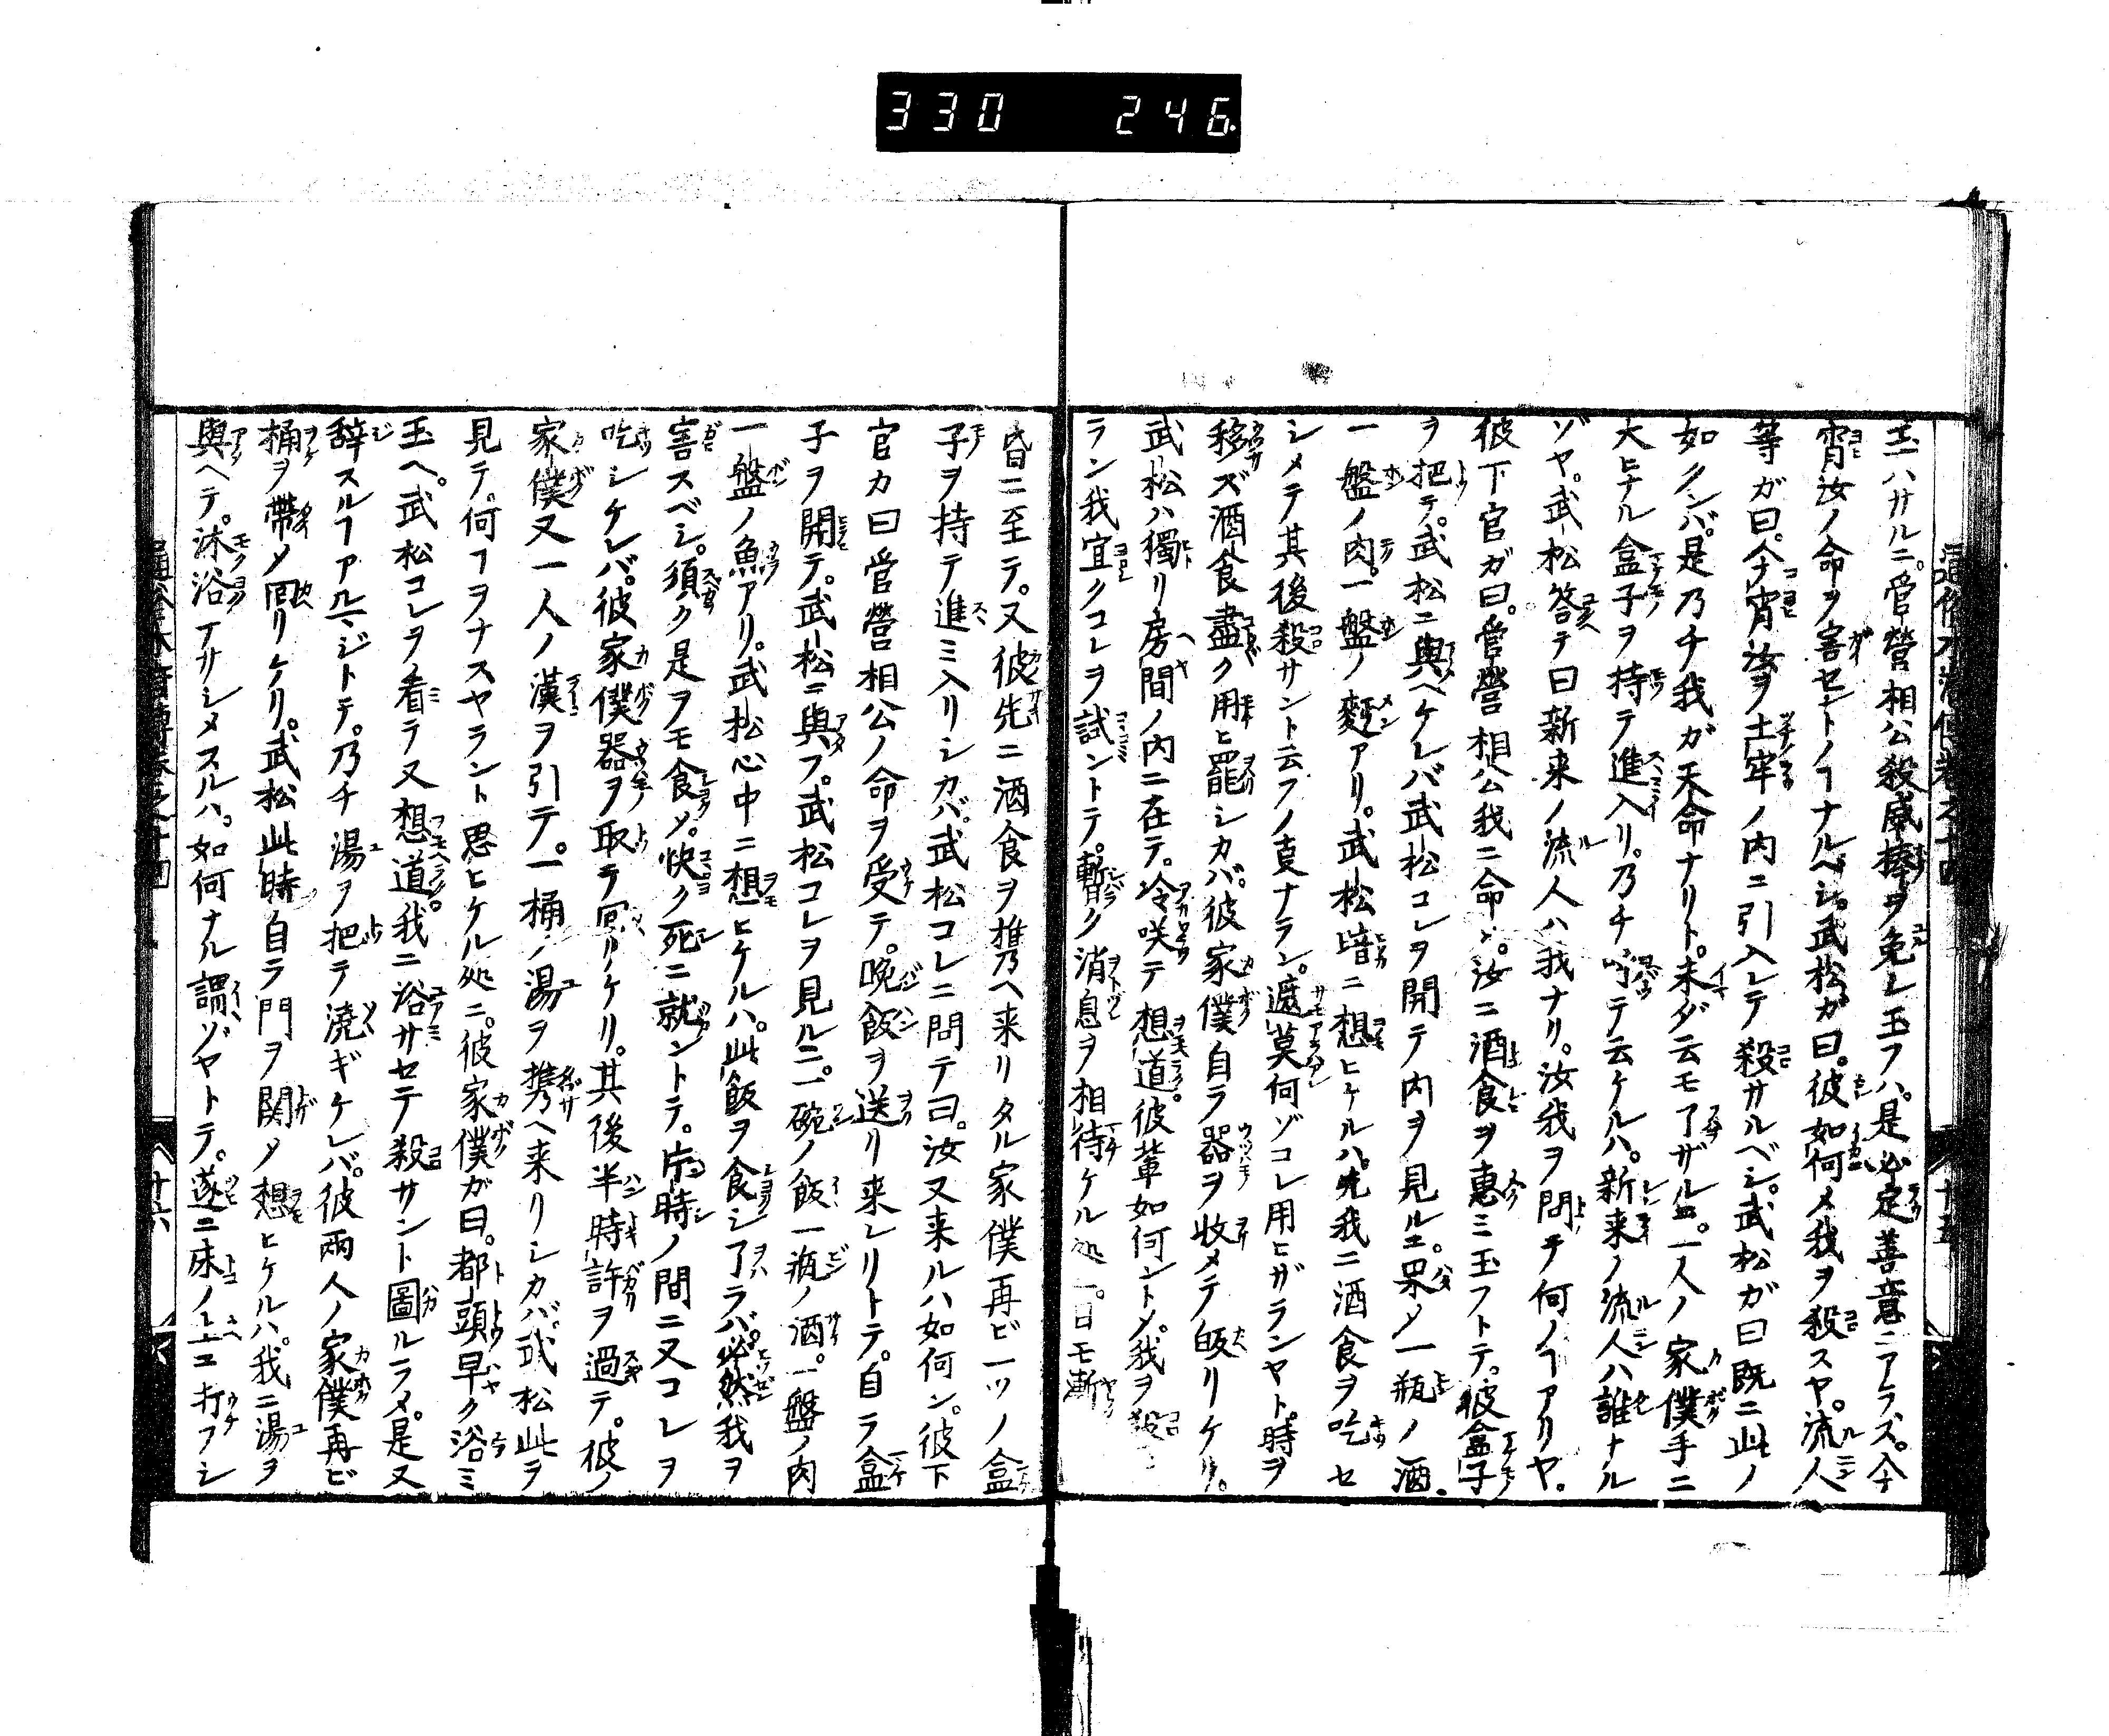 330 246
玉ハサルニ。管營相公殺威棒ヲ免レ玉フハ。是必定善意ニアラズ。今
宵汝ノ命ヲ害セントノヿナルベシ。武松ガ曰。彼如何〆我ヲ殺スヤ。流人
等ガ曰。今宵汝ヲ土牢ノ内ニ引入レテ殺サルベシ。武松ガ曰既ニ此ノ
如クンバ。是乃チ我ガ天命ナリト。未ダ云モ了ザルニ。一人ノ家僕手ニ
大ヒナル盒子ヲ持テ進入リ。乃チ呼テ云ケルハ。新来ノ流人ハ誰ナル
ゾヤ。武松答テ曰新来ノ流人ハ我ナリ。汝我ヲ問テ何ノヿアリヤ。
彼下官ガ曰。管營相公我ニ命〆。汝ニ酒食ヲ惠ミ玉フトテ。彼盒子
ヲ把テ。武松ニ與ヘケレバ武松コレヲ開テ内ヲ見ルニ。果〆一瓶ノ酒。
一盤ノ肉。一盤ノ麪アリ。武松暗ニ想ヒケルハ。先我ニ酒食ヲ吃セ
シメテ其後殺サント云フノ夏ナラン。遮莫何ゾコレ用ヒザランヤト。時ヲ
移ズ酒食盡ク用ヒ罷シカバ。彼家僕自ラ器ヲ收メテ皈リケリ。
武松ハ獨リ房間ノ内ニ在テ。冷咲テ想道。彼輩如何ント〆。我ヲ殺
ラン我宜クコレヲ試ントテ。暫ク消息ヲ相待ケル処ニ。日モ漸
昏ニ至テ。又彼先ニ酒食ヲ携ヘ来リタル家僕再ビ一ツノ盒
子ヲ持テ進ミ入リシカバ。武松コレニ問テ曰。汝又来ルハ如何ン。彼下
官カ曰管營相公ノ命ヲ受テ。晩飯ヲ送リ来レリトテ。自ラ盒
子ヲ開テ。武松ニ與フ。武松コレヲ見ルニ。一碗ノ飯一瓶ノ酒。一盤ノ肉
一盤ノ魚アリ。武松心中ニ想ヒケルハ。此飯ヲ食シ了ラバ。必然我ヲ
害スベシ。須ク是ヲモ食〆。快ク死ニ就ントテ。片時ノ間ニ又コレヲ
吃シケレバ。彼家僕器ヲ取テ回リケリ。其後半時許ヲ過テ。彼ノ
家僕又一人ノ漢ヲ引テ。一桶ノ湯ヲ携ヘ来リシカバ。武松此ヲ
見テ。何ヿヲナスヤラント思ヒケル処ニ。彼家僕ガ曰。都頭早ク浴ミ
玉ヘ。武松コレヲ看テ又想道。我ニ浴サセテ殺サント圖ルラメ。是又
辞スルヿアルマジトテ。乃チ湯ヲ把テ澆ギケレバ。彼兩人ノ家僕再ビ
桶ヲ帶〆回リケリ。武松此時自ラ門ヲ関〆想ヒケルハ。我ニ湯ヲ
與ヘテ。沐浴ナサシメスルハ。如何ナル謂ゾヤトテ。遂ニ床ノ上ニ打フシ
八 十六